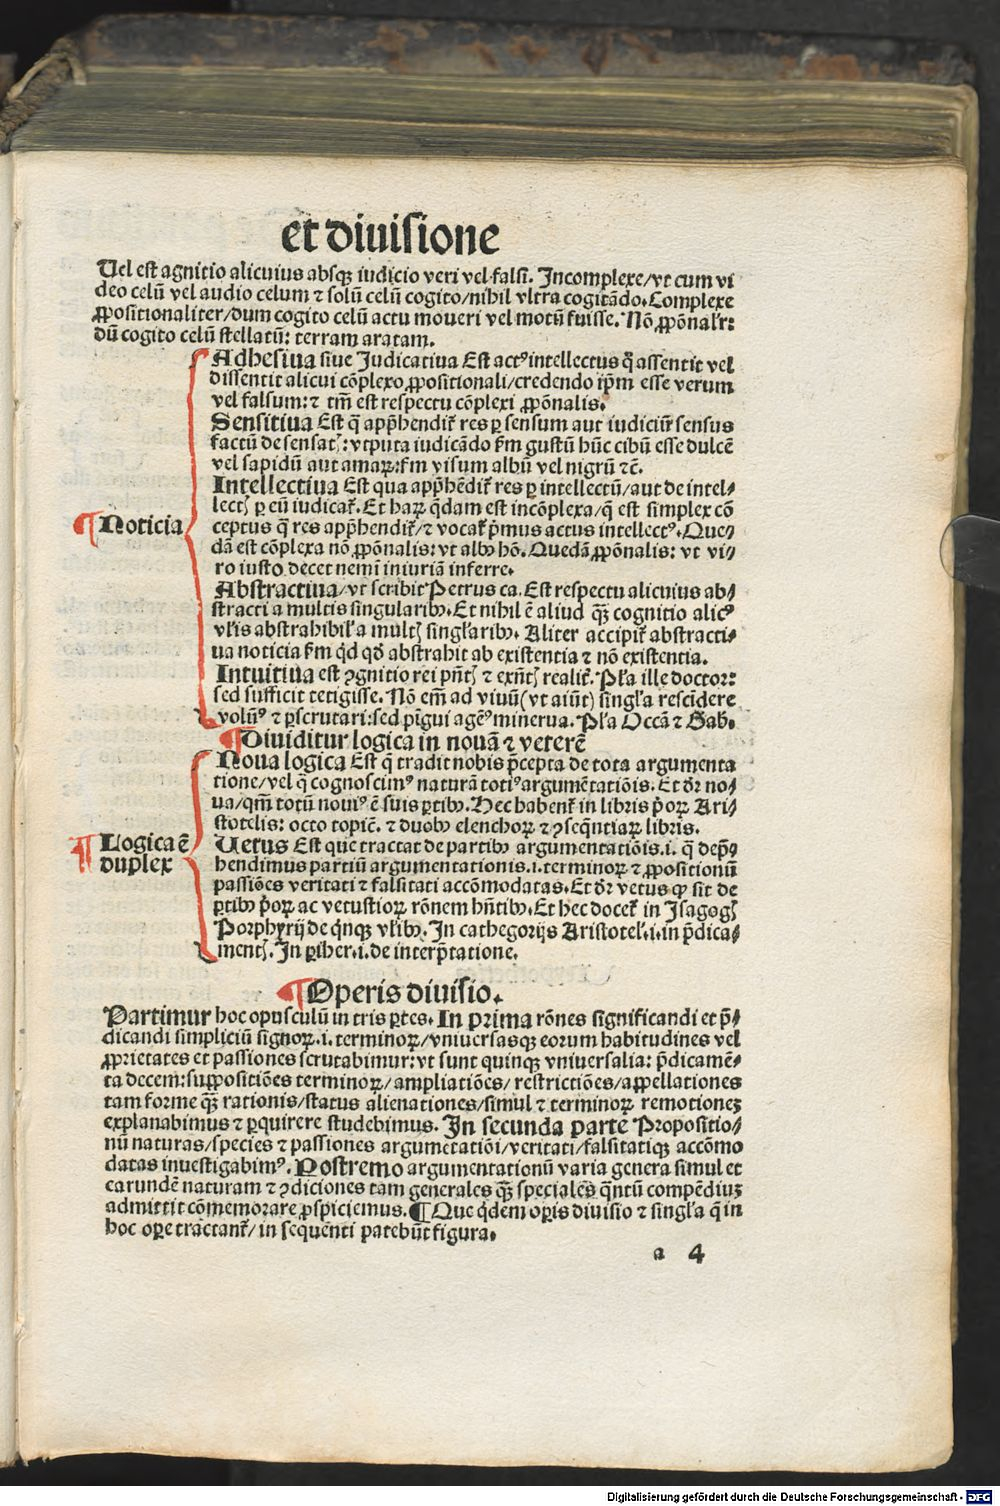 et diuisione
Uel est agnitio alicuius absqꝫ iudicio veri vel falsi. Incomplexe/vt cum vi
deo celū vel audio celum ⁊ solū celū cogito/nihil vltra cogitādo. Complexe
ꝓpositionaliter/dum cogito celū actu moueri vel motū fuisse. Nō ꝓpōnalr̄:
dū cogito celū stellatū: terram aratam.
Adhesiua siue Iudicatiua Est actꝰ intellectus q̄ assentit vel
dissentit alicui cōplexo ꝓpositionali/credendo ip̄m esse verum
vel falsum: ⁊ tm̄ est respectu cōplexi ꝓpōnalis.
Sensitiua Est q̄ app̄hendit᷑ res ꝑ sensum aut iudiciū sensus
factū de sensat̄: vtputa iudicādo ẜm gustū hūc cibū esse dulcē
vel sapidū aut amaꝝ: ẜm visum albū vel nigrū ⁊c̄.
Intellectiua Est qua app̄hēdit᷑ res ꝑ intellectū/aut de intel⸗
lect̄ ꝑ eū iudicat᷑. Et haꝝ q̄dam est incōplexa/q̄ est simplex cō
ceptus q̄ res app̄hendit᷑/⁊ vocat᷑ p̄mus actus intellectꝰ. Que⸗
dā est cōplexa nō ꝓpōnalis: vt albꝰ hō. Quedā ꝓpōnalis: vt vi⸗
ro iusto decet nemini iniuriā inferre.
¶ Noticia
Abstractiua/vt scribit Petrus ca. Est respectu alicuius ab⸗
stracti a multis singularibꝰ. Et nihil ē aliud qꝫ̄ cognitio alicꝰ
vl̄is abstrahibil̄ a mult̄ singl̄aribꝰ. Aliter accipit᷑ abstracti⸗
ua noticia ẜm qd̄ qd̄ abstrahit ab existentia ⁊ nō existentia.
Intuitiua est ꝯgnitio rei pn̄t̄ ⁊ exn̄t̄ realit᷑. Pl̄a ille doctor:
sed sufficit tetigisse. Nō em̄ ad viuū (vt aiūt) singl̄a rescidere
volūꝰ ⁊ ꝑscrutari: sed pīgui agēꝰ minerua. Pl̄a Occā ⁊ Gab.
¶ Diuiditur logica in nouā ⁊ veterē
Noua logica Est q̄ tradit nobis p̄cepta de tota argumenta
tione/vel q̄ cognoscimꝰ naturā totiꝰ argumētatiōis. Et dr̄ no⸗
ua/qm̄ totū nouiꝰ ē suis ꝑtibꝰ. Hec habent᷑ in libris p̄oꝝ Ari⸗
stotelis: octo topic̄. ⁊ duobꝰ elenchoꝝ ⁊ ꝯseqn̄tiaꝝ libris.
¶ Logica ē
duplex
Uetus Est que tractat de partibꝰ argumentatiōis .i. q̄ dep̄⸗
hendimus partiū argumentationis .i. terminoꝝ ⁊ ꝓpositionū
passiōes veritati ⁊ falsitati accōmodatas. Et dr̄ vetus ꝙ sit de
ꝑtibꝰ p̄oꝝ ac vetustioꝝ rōnem hn̄tibꝰ. Et hec docet᷑ in Isagoḡ
Porphyrij de q̄nqꝫ vl̄ibꝰ. In cathegorijs Aristotel̄ .i. in p̄dica⸗
ment̄. In ꝑiher .i. de interp̄tatione.
¶ Operis diuisio.
Partimur hoc opusculū in tris ꝑtes. In prima rōnes significandi et p̄⸗
dicandi simpliciū signoꝝ .i. terminoꝝ/vniuersasqꝫ eorum habitudines vel
ꝓprietates et passiones scrutabimur: vt sunt quinqꝫ vniuersalia: p̄dicamē⸗
ta decem: suppositiōes terminoꝝ/ampliatiōes/restrictiōes/appellationes
tam forme qꝫ̄ rationis/status alienationes/simul ⁊ terminoꝝ remotionez
explanabimus ⁊ ꝑquirere studebimus. In secunda parte Propositio⸗
nū naturas/species ⁊ passiones argumētatiōi/veritati/falsitatiqꝫ accōmo
datas inuestigabimꝰ. Postremo argumentationū varia genera simul et
earundē naturam ⁊ ꝯdiciones tam generales qꝫ̄ speciales q̄ntū compēdiuz
admittit cōmemorare ꝑspiciemus. ¶ Que q̄dem oꝑis diuisio ⁊ singl̄a q̄ in
hoc oꝑe tractant᷑/in sequenti patebūt figura.
a 4
Digitalisierung gefördert durch die Deutsche Forschungsgemeinschaft - DFG